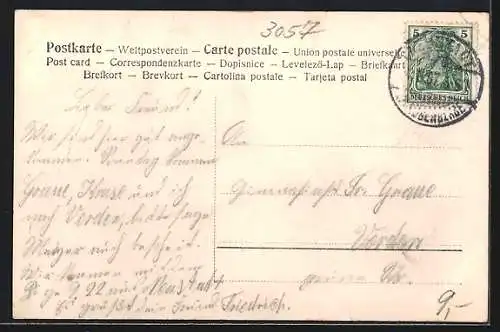 3057
Postkarte – Weltpostverein – Carte postale – Union postale universelle
Post card – Correspondenzkarte – Dopisnice – Levelező-Lap – Briefkaart
Brefkort – Brevkort – Cartolina postale – Tarjeta postal
5 5
DEUTSCHES REICH
Lieber Freund!
Wir sind hier gut ange-
kommen. Sonntag kommen
Graue, Kruse und ich
nach Verden, bitte sage
Meyer auch bescheid.
Wir kommen mit dem
Es grüßt dein Freund Friedrich.
An
Gymnasiast Fr. Graue
Verden
9,-